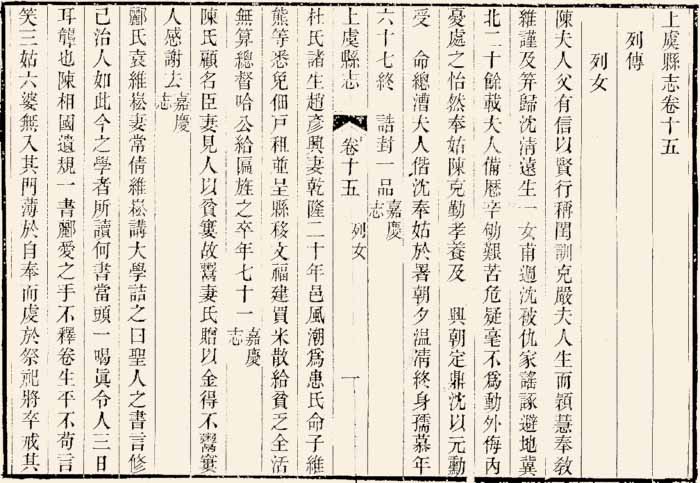 上虞縣志卷十五
列傳
列女
陳夫人父有信以賢行稱閨訓克嚴夫人生而穎慧奉敎
維謹及笄歸沈清遠生一女甫週沈被仇家謠諑避地冀
北二十餘載夫人備歷辛劬艱苦危疑毫不爲動外侮內
憂處之怡然奉姑陳克勤孝養及 興朝定鼎沈以元勳
受 命總漕夫人偕沈奉姑於署朝夕温凊終身孺慕年
六十七終 誥封一品嘉慶志
上虞縣志 卷十五 列女 一
杜氏諸生趙彥興妻乾隆二十年邑風潮爲患氏命子維
熊等悉免佃戶租並呈縣移文福建買米散給貧乏全活
無算總督哈公給匾旌之卒年七十一嘉慶志
陳氏顧名臣妻見人以貧窶故鬻妻氏贈以金得不鬻窶
人感謝去嘉慶志
酈氏袁維崧妻常倩維崧講大學詰之曰聖人之書言修
己治人如此今之學者所讀何書當頭一喝眞令人三日
耳聾也陳相國遺規一書酈愛之手不釋卷生平不苟言
笑三姑六婆無入其門薄於自奉而虔於祭祀將卒戒其